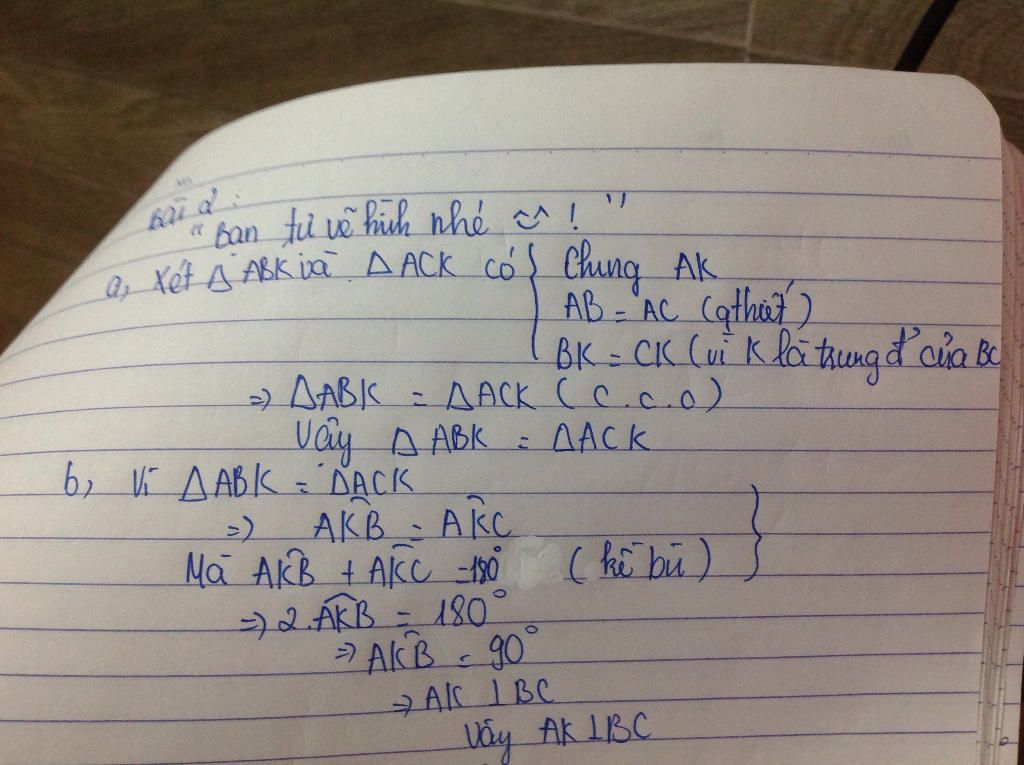 Bài 2:
"Bạn tự vẽ hình nhé ^^ ! "
a, Xét Δ ABK và ΔACK có { Chung AK
AB = AC (gthiết)
BK = CK (vì K là trung đ' của BC
=> ΔABK = ΔACK ( c.c.c )
Vậy Δ ABK = ΔACK
b, Vì ΔABK = ΔACK
=> AK̂B = AK̂C
Mà AK̂B + AK̂C = 180° ( kề bù ) }
=> 2.AK̂B = 180°
=> AK̂B = 90°
=> AK ⊥ BC
Vậy AK⊥BC